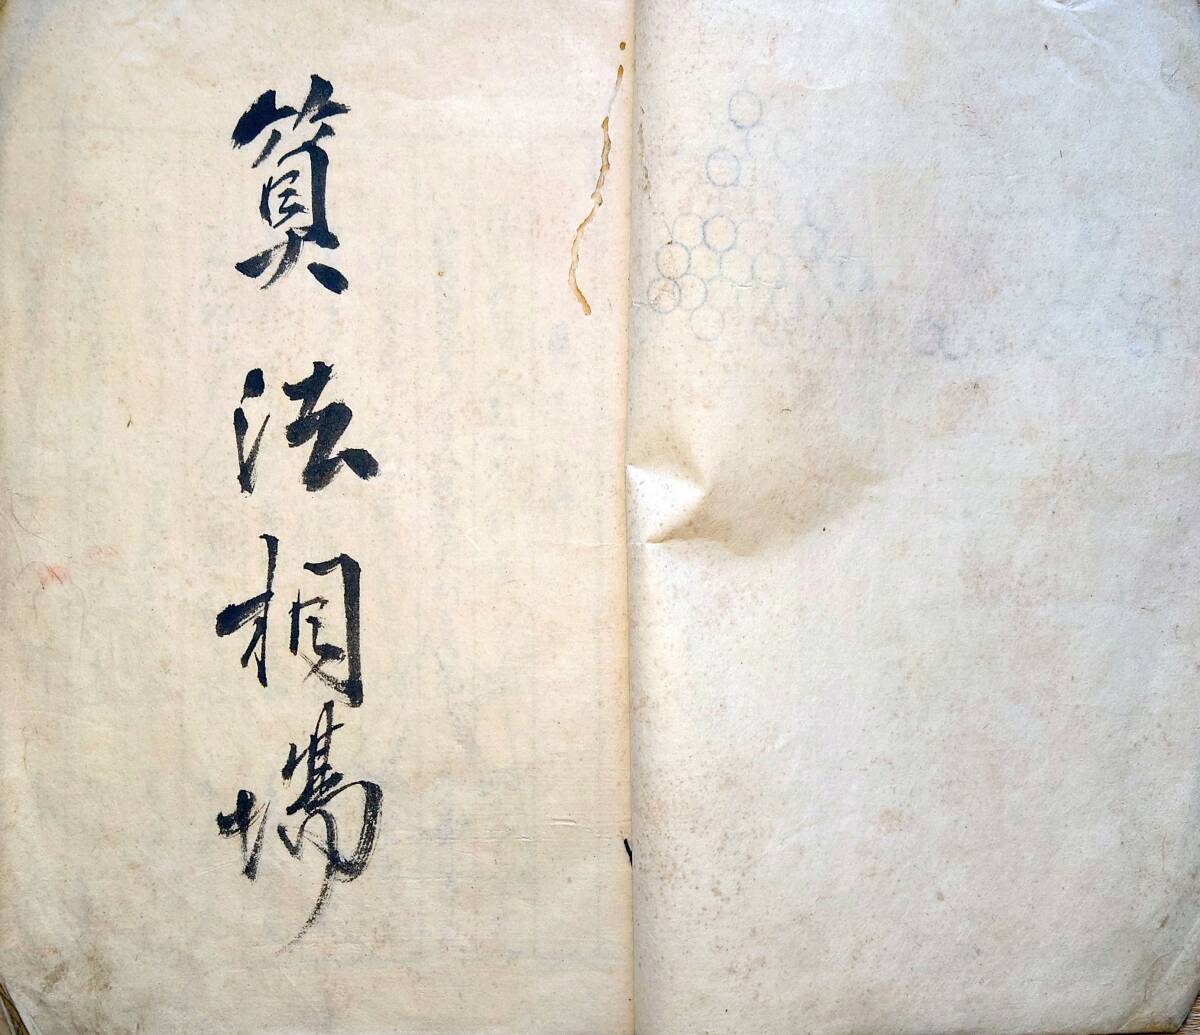 算法相場